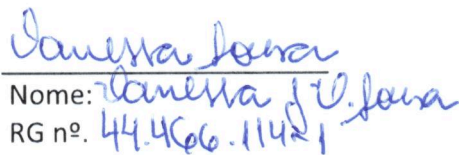 Vanessa Sousa
Nome: Vanessa J. V. Sousa
RG nº. 44.466.114-1